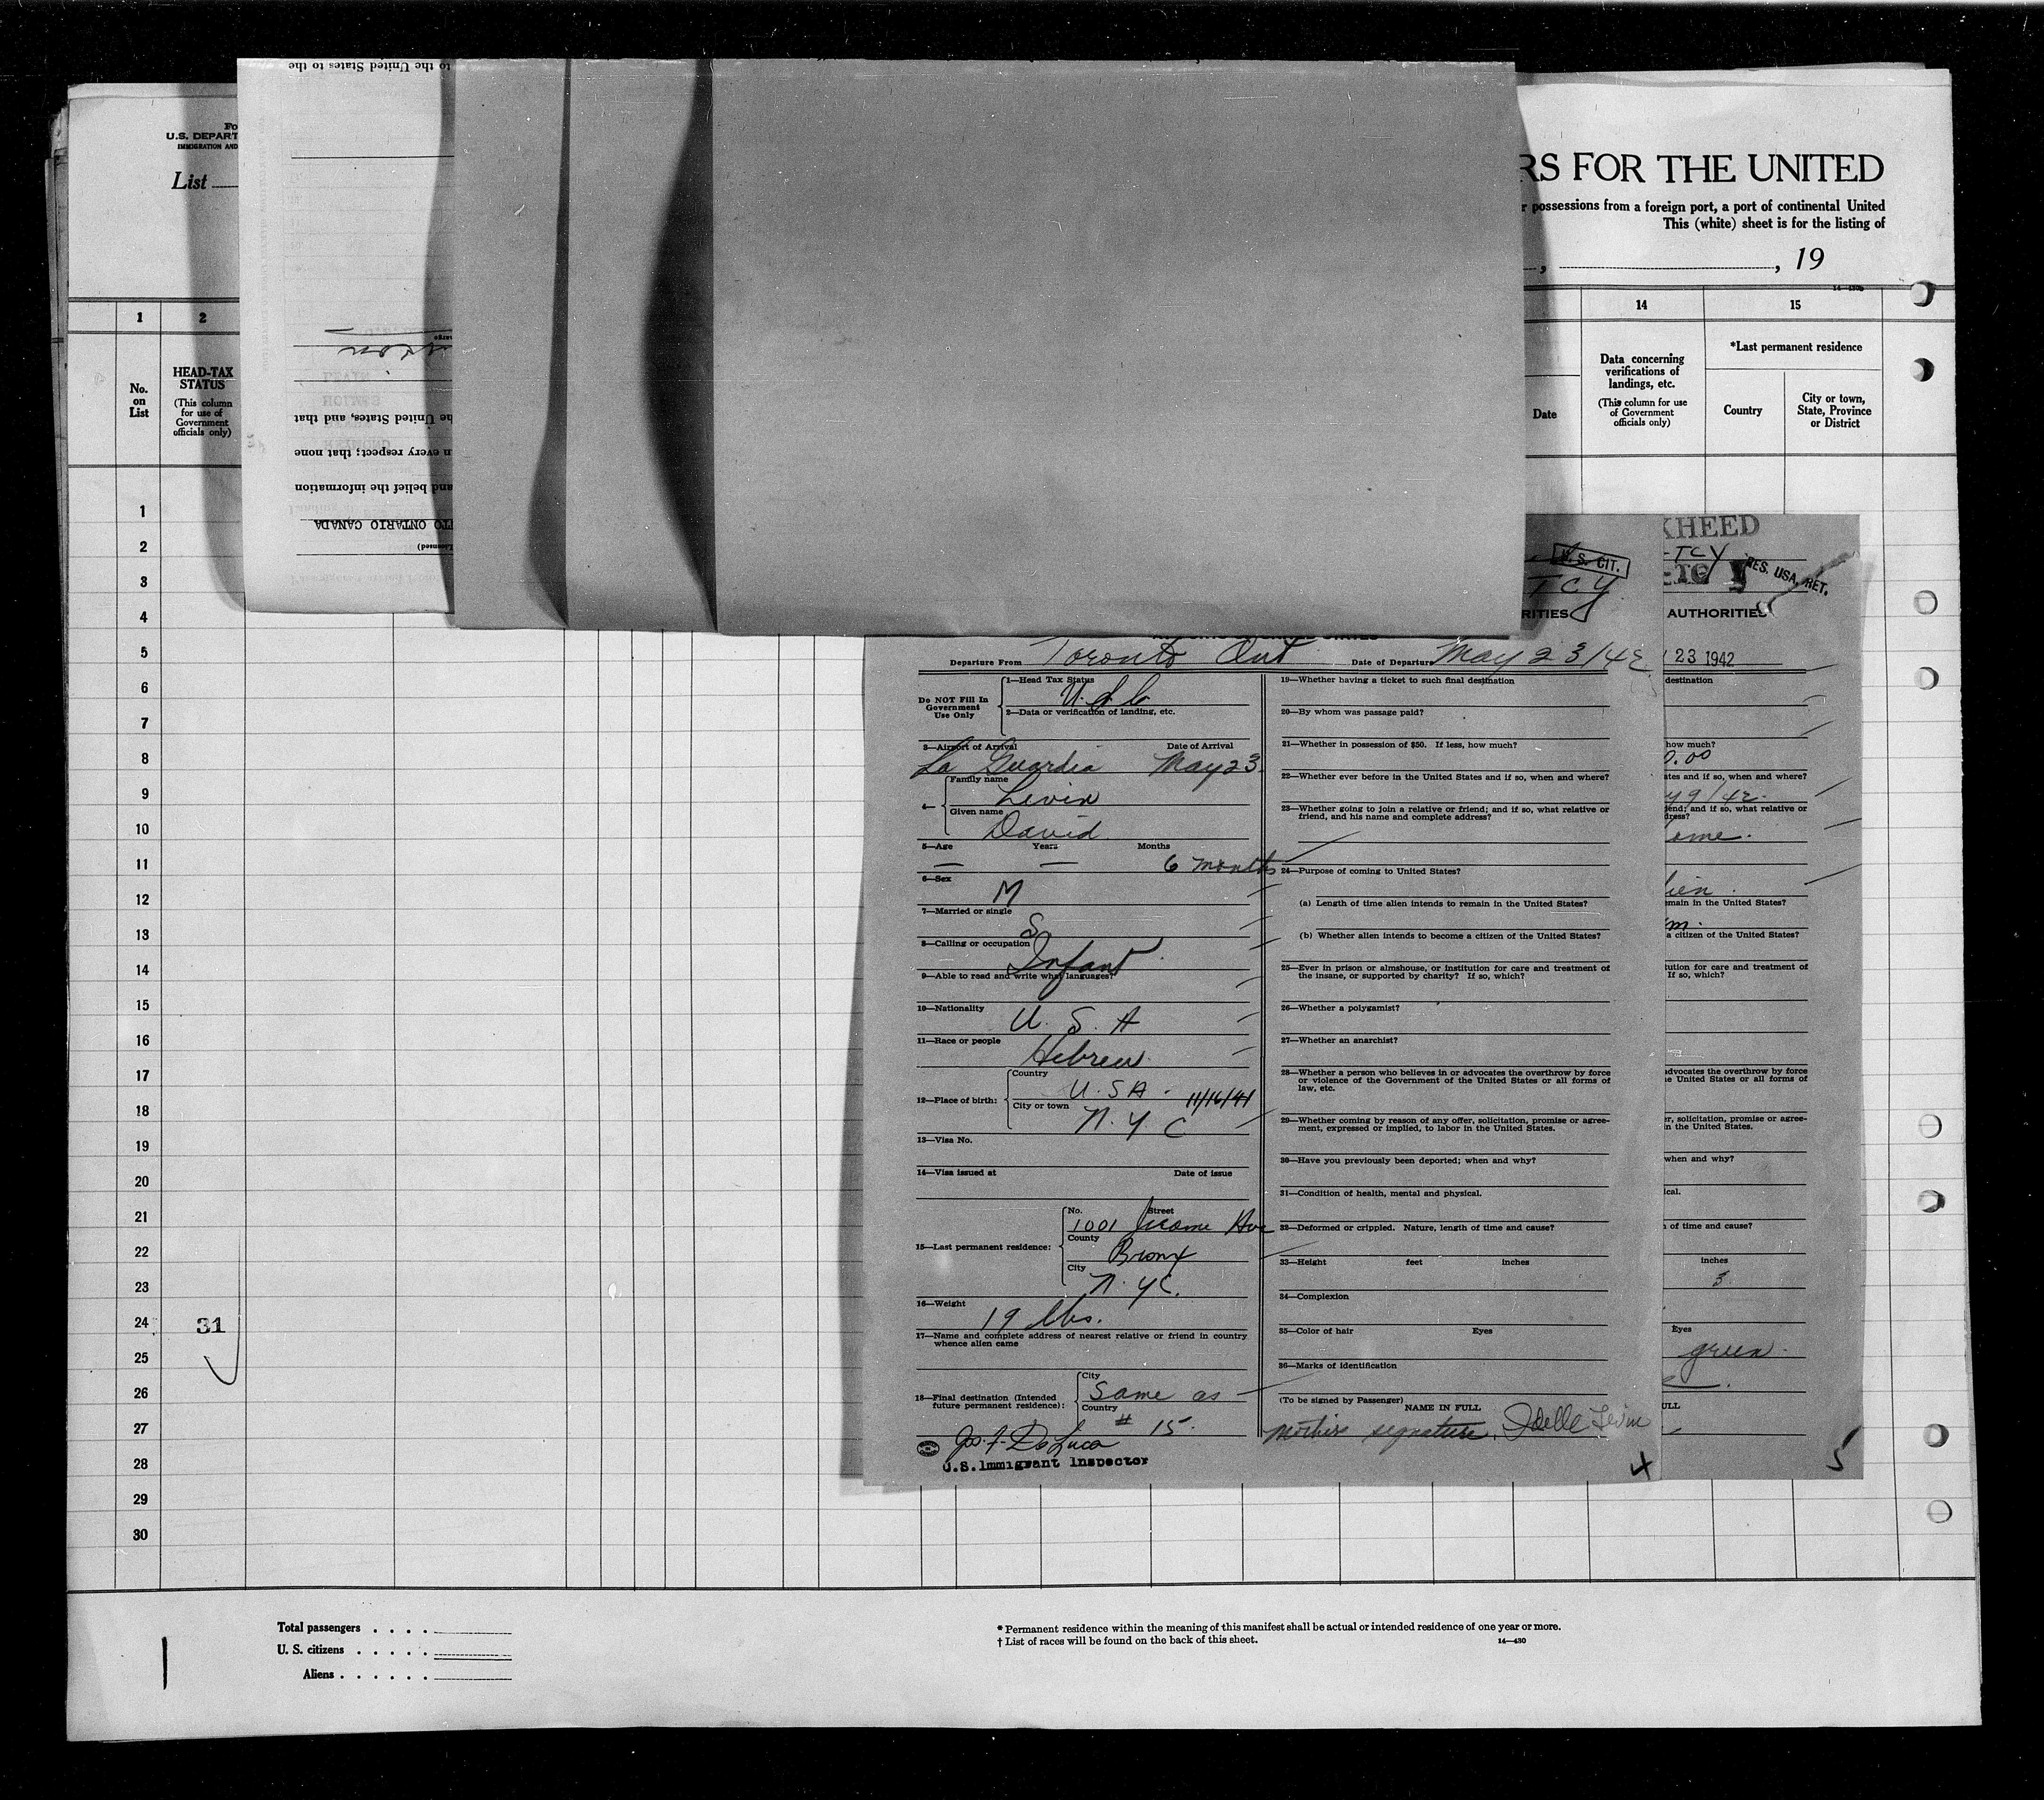 to the United States to the
Fo
U.S. DEPART
IMMIGRATION AND
List
he United States, and that
n every respect; that none
and belief the information
TO ONTARIO CANADA
Licensed)
RS FOR THE UNITED
r possessions from a foreign port, a port of continental United
This (white) sheet is for the listing of
, , 19
14—430b
1 2 14 15
No. on List
HEAD-TAX STATUS
(This column for use of Government officials only)
Date
Data concerning verifications of landings, etc.
(This column for use of Government officials only)
*Last permanent residence
Country
City or town, State, Province or District
1
2
3
4
5
6
7
8
9
10
11
12
13
14
15
16
17
18
19
20
21
22
23
24 31
25
26
27
28
29
30
U.S. CIT.
TCY
RITIES
Departure From Toronto Ont Date of Departure May 23/42
Do NOT Fill In Government Use Only
1—Head Tax Status
U.S.C
2—Data or verification of landing, etc.
3—Airport of Arrival Date of Arrival
La Guardia May 23
4— Family name
Levin
Given name
David
5—Age Years Months
— — 6 months
6—Sex
M
7—Married or single
S
8—Calling or occupation
Infant
9—Able to read and write what languages?
10—Nationality
U. S. A
11—Race or people
Hebrew
12—Place of birth:
Country
U.S.A. 11/16/41
City or town
N. Y C
13—Visa No.
14—Visa issued at Date of issue
15—Last permanent residence:
No. Street
1001 Jerome Ave
County
Bronx
City
N. Y C.
16—Weight
19 lbs.
17—Name and complete address of nearest relative or friend in country whence alien came
18—Final destination (Intended future permanent residence):
City
Same as
Country
# 15.
Jos. F. De Luca
U.S. Immigrant Inspector
19—Whether having a ticket to such final destination
20—By whom was passage paid?
21—Whether in possession of $50. If less, how much?
22—Whether ever before in the United States and if so, when and where?
23—Whether going to join a relative or friend; and if so, what relative or
friend, and his name and complete address?
24—Purpose of coming to United States?
(a) Length of time alien intends to remain in the United States?
(b) Whether alien intends to become a citizen of the United States?
25—Ever in prison or almshouse, or institution for care and treatment of
the insane, or supported by charity? If so, which?
26—Whether a polygamist?
27—Whether an anarchist?
28—Whether a person who believes in or advocates the overthrow by force
or violence of the Government of the United States or all forms of
law, etc.
29—Whether coming by reason of any offer, solicitation, promise or agree-
ment, expressed or implied, to labor in the United States.
30—Have you previously been deported; when and why?
31—Condition of health, mental and physical.
32—Deformed or crippled. Nature, length of time and cause?
33—Height feet inches
34—Complexion
35—Color of hair Eyes
36—Marks of identification
(To be signed by Passenger)
NAME IN FULL
Mothers signature. Idelle Levin
4
KHEED
-TCY
-TC Y RES. USA, RET.
AUTHORITIES
23 1942
destination
how much?
0.00
ates and if so, when and where?
y 9/42.
iend; and if so, what relative or
dress?
ome.
emain in the United States?
a citizen of the United States?
tution for care and treatment of
If so, which?
advocates the overthrow by force
e United States or all forms of
er, solicitation, promise or agree-
n the United States.
when and why?
ical.
h of time and cause?
inches
5
Eyes
green.
ULL
5
Total passengers . . . .
U. S. citizens . . . . .
Aliens . . . . . .
* Permanent residence within the meaning of this manifest shall be actual or intended residence of one year or more.
† List of races will be found on the back of this sheet.
14—430